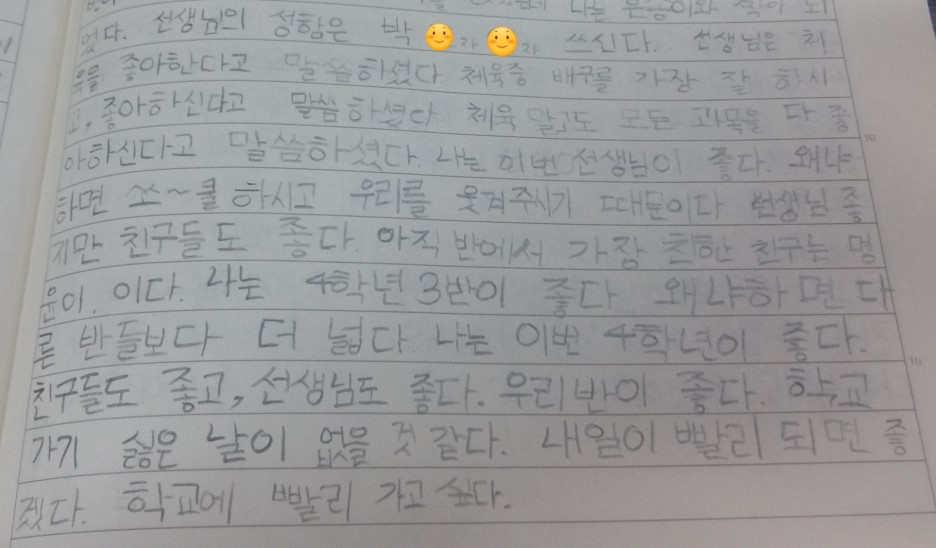 나는 은송이와 짝이 되
었다. 선생님의 성함은 박 자 자 쓰신다. 선생님은 체
육을 좋아한다고 말씀하셨다 체육중 배구를 가장 잘 하시
고, 좋아하신다고 말씀하셨다. 체육 말고도 모든 과목을 다 좋
아하신다고 말씀하셨다. 나는 이번 선생님이 좋다. 왜냐
하면 쏘~쿨 하시고 우리를 웃겨주시기 때문이다. 선생님 좋
지만 친구들도 좋다. 아직 반에서 가장 친한 친구는 명
윤이. 이다. 나는 4학년 3반이 좋다 왜냐하면 다
른 반들보다 더 넓다. 나는 이번 4학년이 좋다.
친구들도 좋고, 선생님도 좋다. 우리반이 좋다. 학교
가기 싫은 날이 없을 것 같다. 내일이 빨리 되면 좋
겠다. 학교에 빨리 가고 싶다.